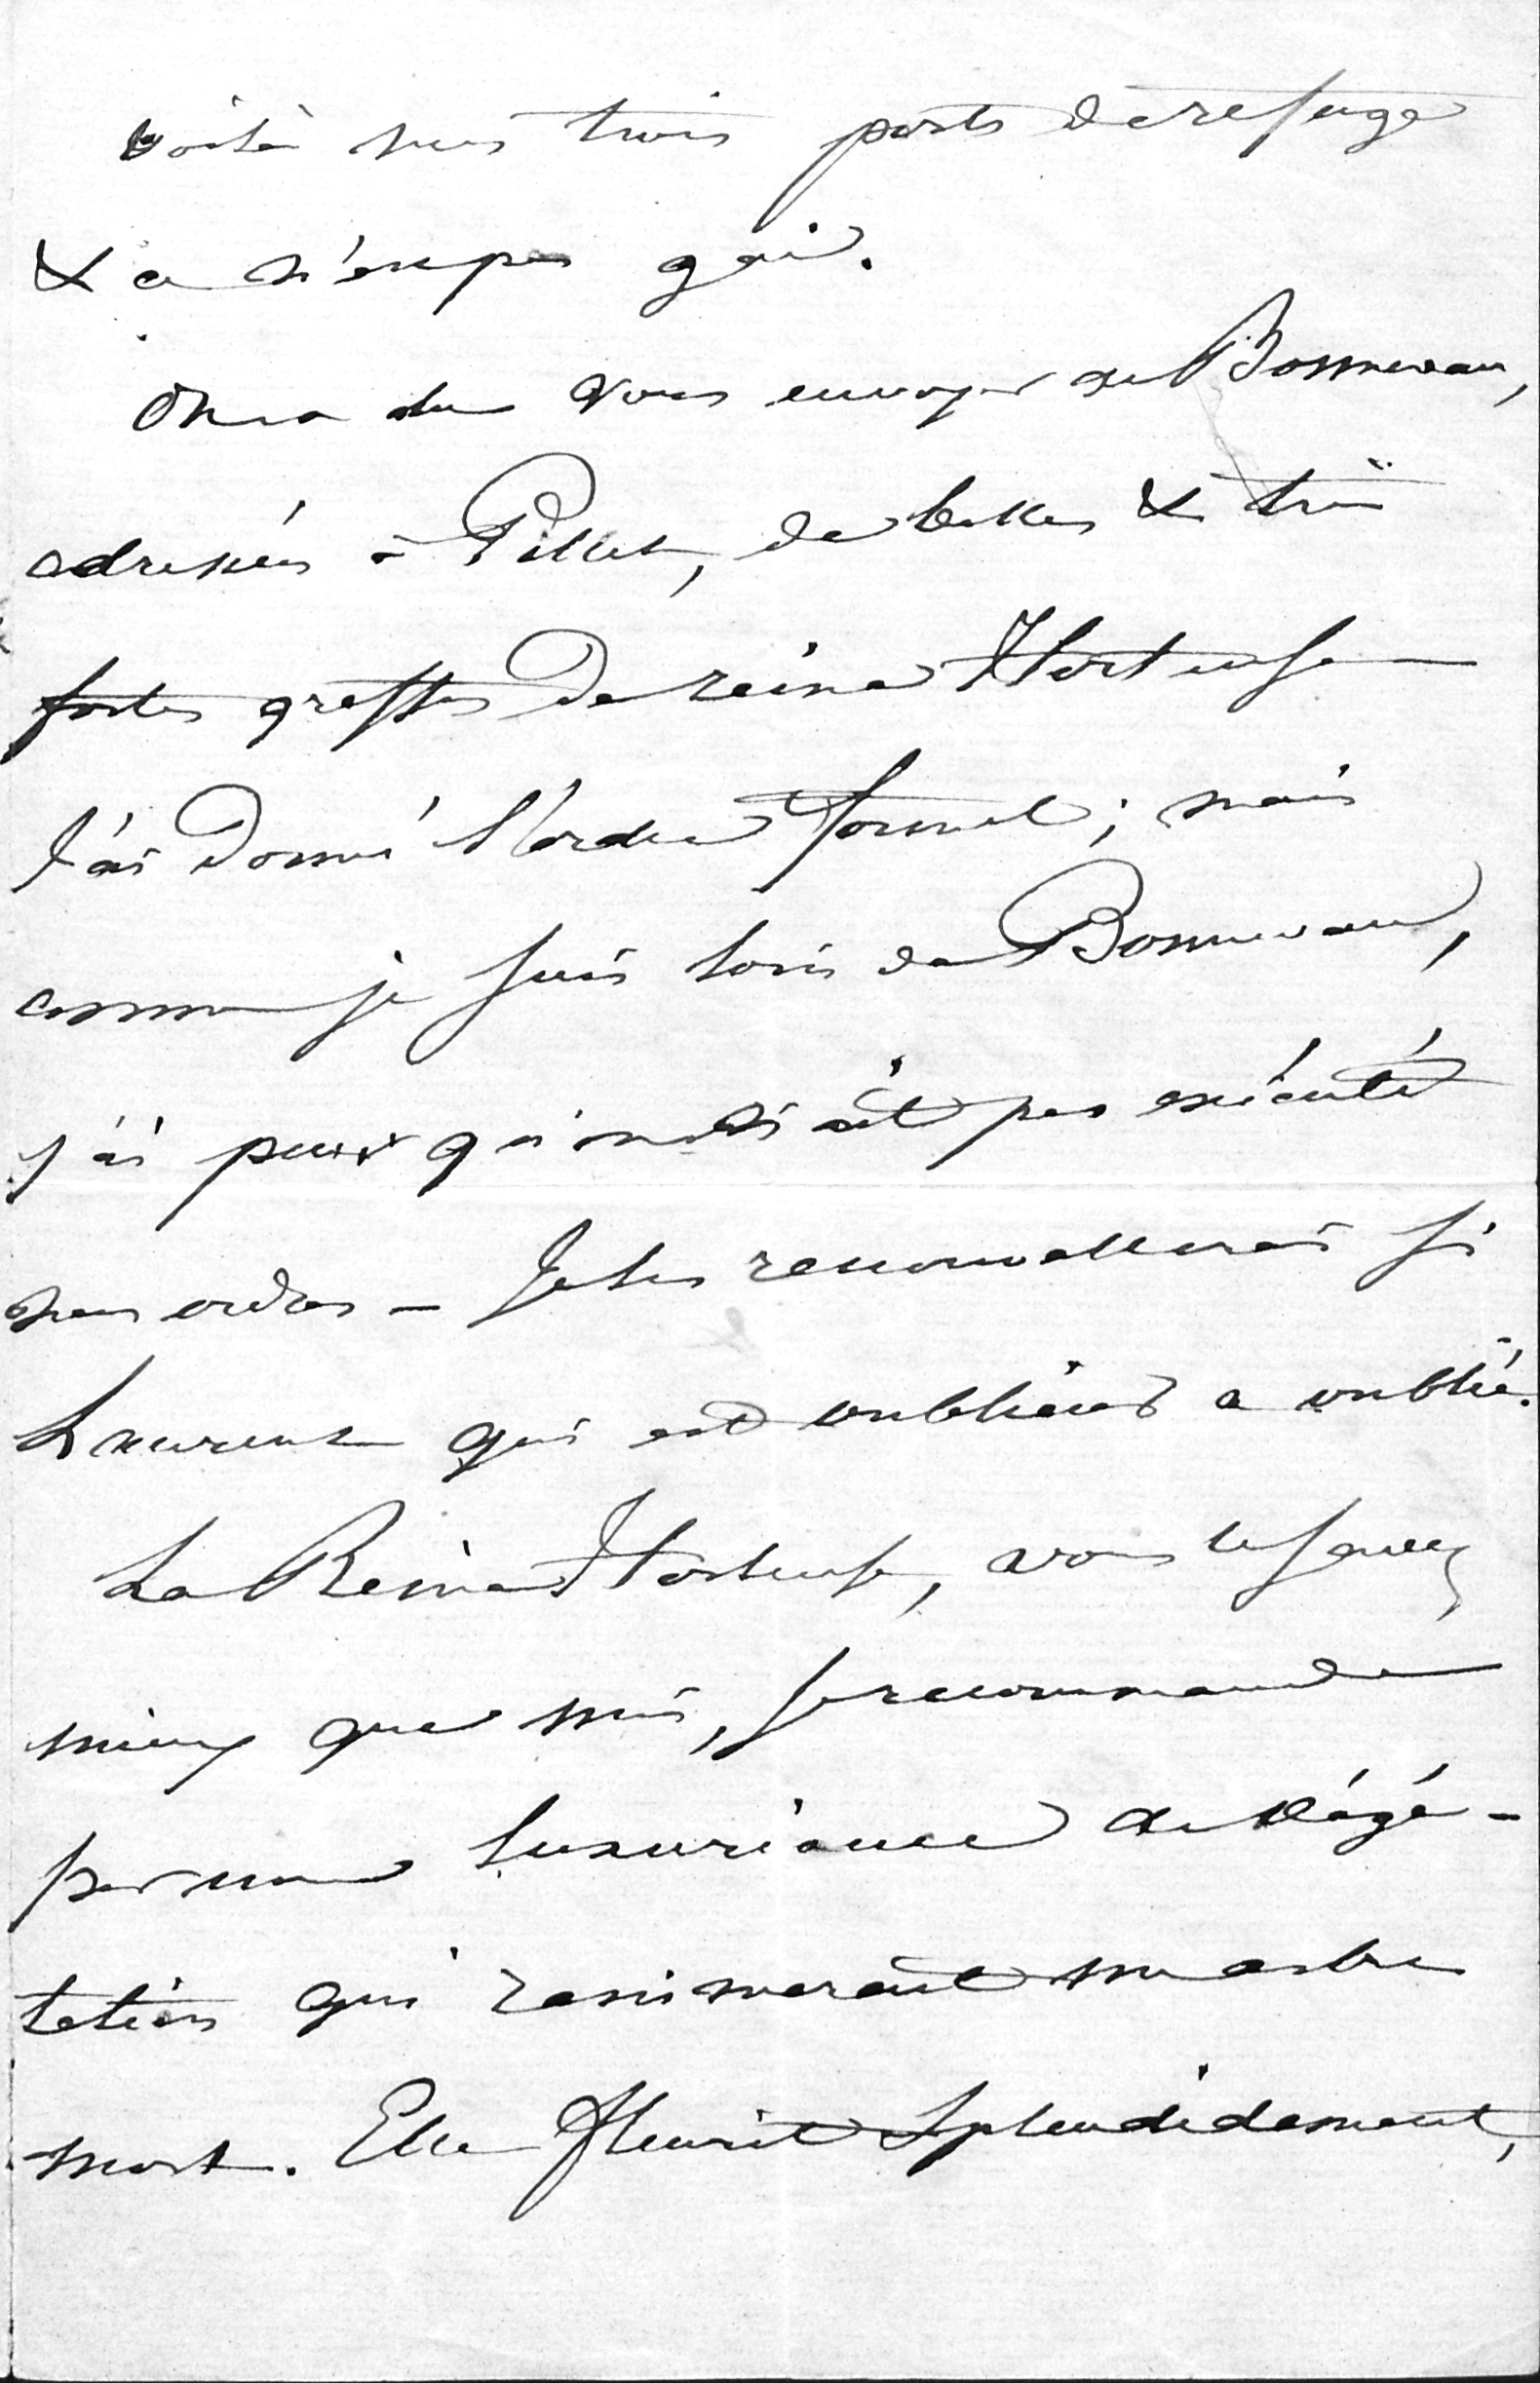 Voilà nos trois ports de refuge
& ce n'est pas gai.
On a du vous envoyer de Bonneveau,
adressées à Pillet, de belles & très
fortes greffes de reine Hortense
J'ai donné l'ordre formel ; mais
comme je suis loin de Bonneveau,
j'ai peur qu'on n'ait pas exécuté
mes ordres – Je les renouvellerai si
Laurent qui est oublieux a oublié.
La Reine Hortense, vous le savez
mieux que moi, se recommande
par une luxuriance de végé-
tation qui ranimerait un arbre
mort. Elle fleurit splendidement,